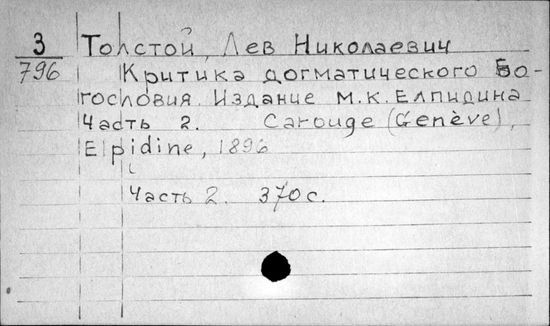 3 Толстой, Лев Николаевич
796 Критика догматического Бо-
гословия. Издание М.К. Елпидина
Часть 2. Carouge (Genève),
Elpidine, 1896
Часть 2. 370 с.